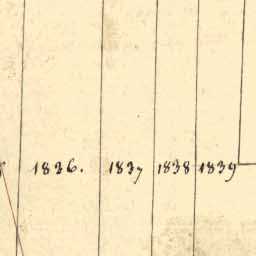 1836. 1837 1838 1839